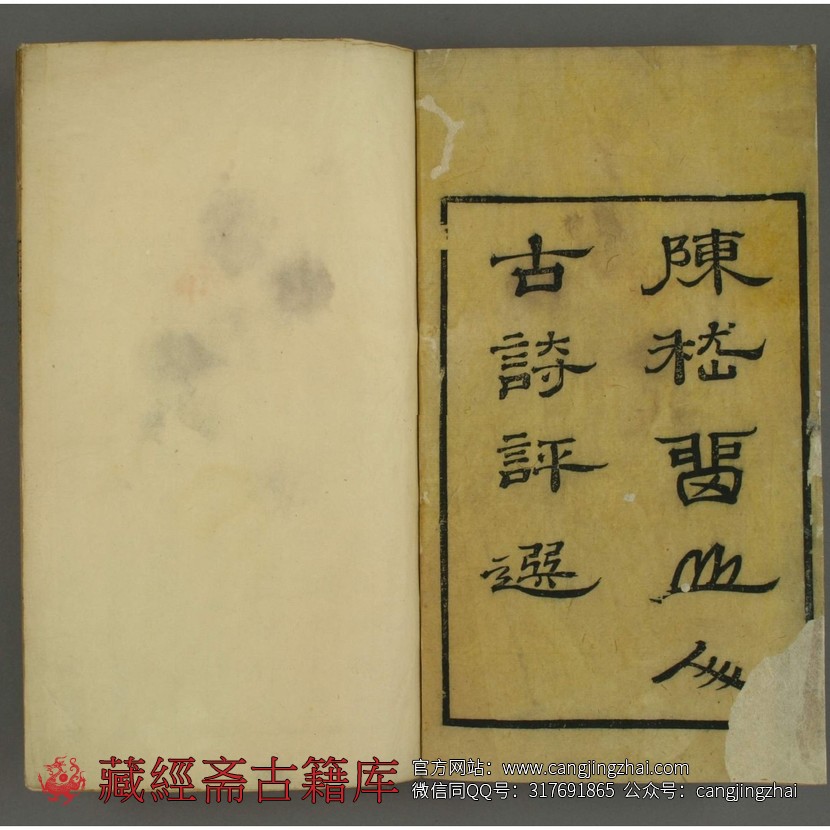 陳嵇畱山人
古詩評選
藏經斋古籍库
官方网站：www.cangjingzhai.com
微信同QQ号：317691865 公众号：cangjingzhai